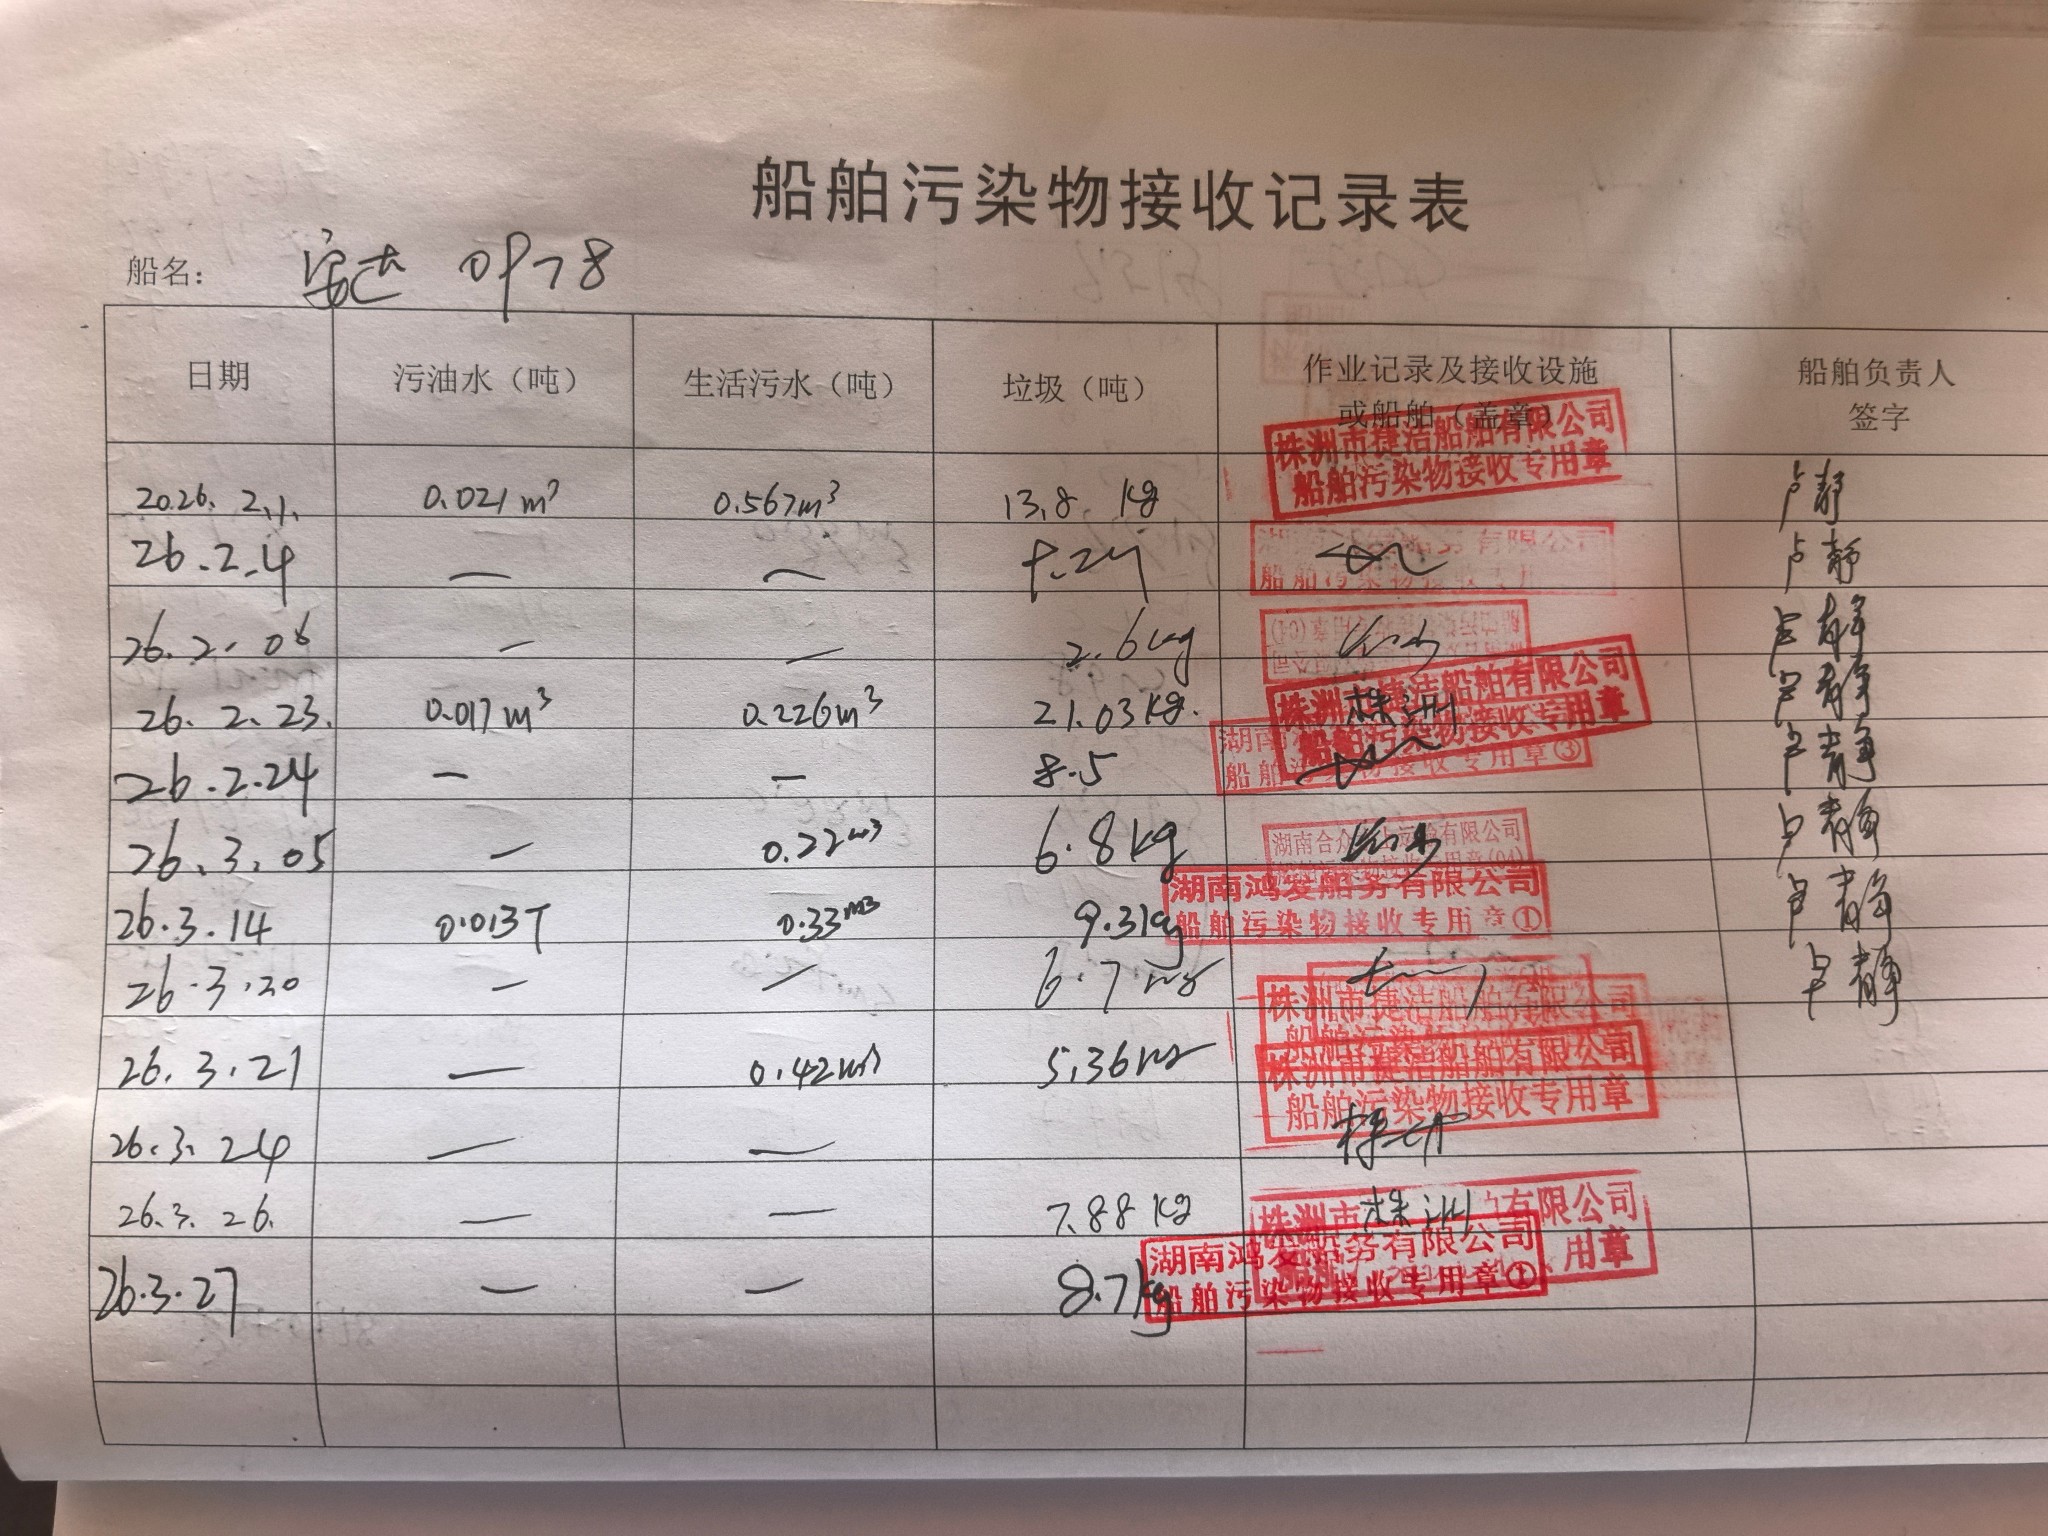 船舶污染物接收记录表
船名： 安达 0978
日期 污油水（吨） 生活污水（吨） 垃圾（吨） 作业记录及接收设施或船舶（盖章） 船舶负责人签字
2026.2.1. 0.021m³ 0.567m³ 13.8 kg 株洲市捷洁船舶有限公司 船舶污染物接收专用章 卢静
26.2.4 — — 有限公司 船舶污染物接收专用 卢静
26.2.06 — — 2.6kg 卢静
26.2.23. 0.017m³ 0.226m³ 21.03kg. 株洲市捷洁船舶有限公司 船舶污染物接收专用章 株洲 卢静
26.2.24 — — 8.5 湖南 船舶污染物接收专用章③ 卢静
26.3.05 — 0.22m³ 6.8kg 湖南合众 有限公司 卢静
26.3.14 0.013T 0.33m3 9.3kg 湖南鸿发船务有限公司 船舶污染物接收专用章① 卢静
26.3.20 — — 6.7 卢静
26.3.21 — 0.42m³ 5.36 株洲市捷洁船舶有限公司 船舶污染物接收专用章
26.3.24 — — 株洲市捷洁船舶有限公司 船舶污染物接收专用章 株洲
26.3.26. — — 7.88kg 株洲市 有限公司 用章 株洲
26.3.27 — — 8.7kg 湖南鸿发船务有限公司 船舶污染物接收专用章①